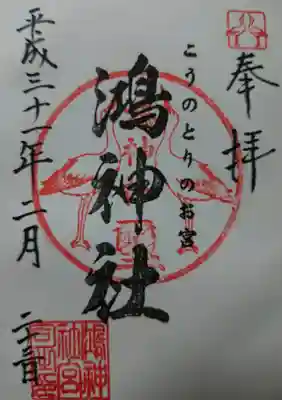 奉拝
こうのとりのお宮
鴻神社
平成三十一年二月二十三日
鴻神社宮司之印